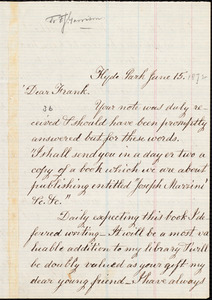 To F J Garrison
Hyde Park June 15. 1872
Dear Frank.
36
Your note was duly re-
ceived & should have been promptly
answered but for these words.
"I shall send you in a day or two a
copy of a book which we are about
publishing entitled Joseph Mazzini
&c. &c."
Daily expecting this book I de-
ferred writing— It will be a most va-
luable addition to my library & will
be doubly valued as your gift my
dear young friend— I have always